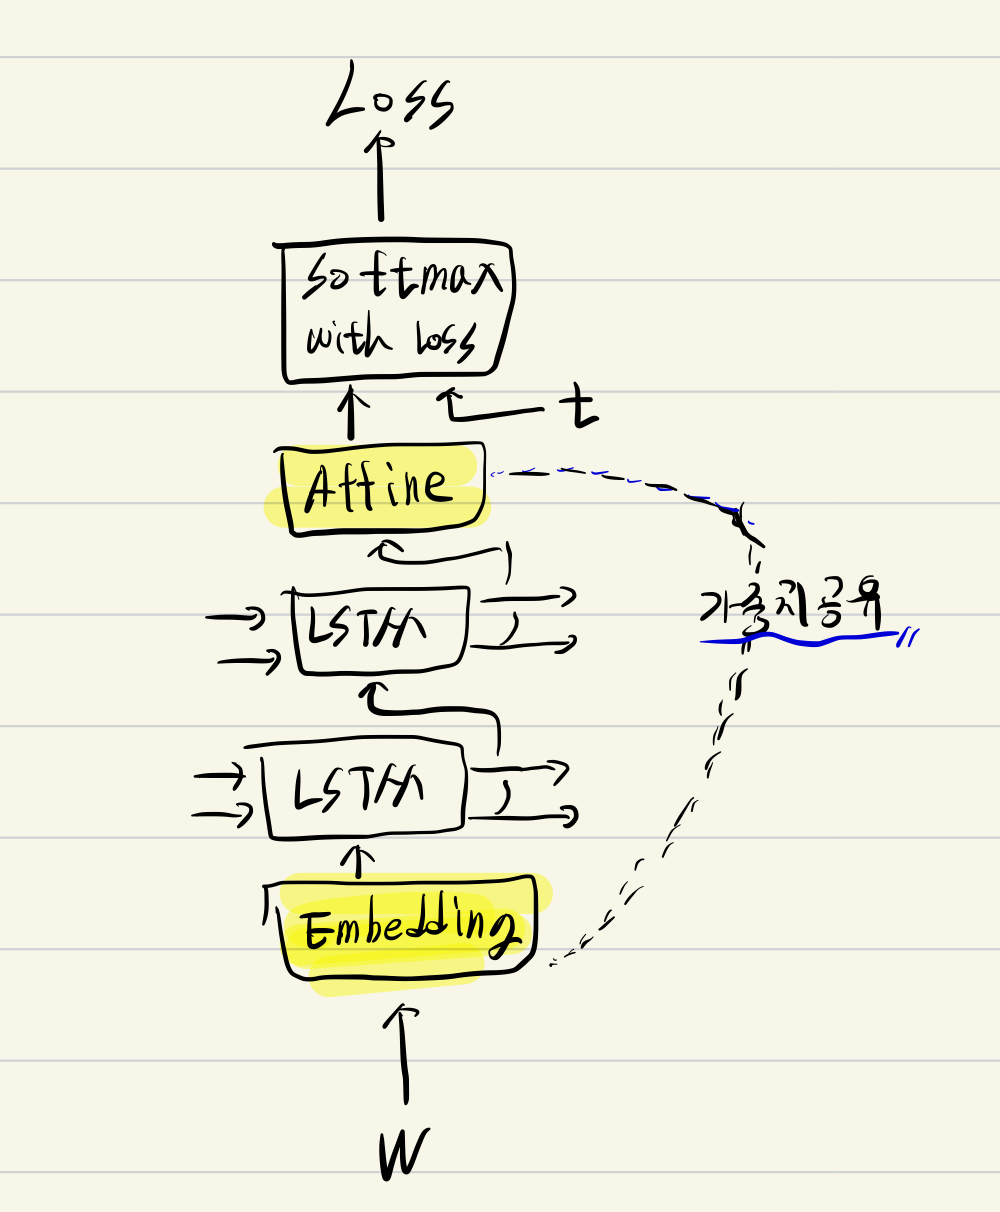 Loss
softmax
with loss
t
Affine
LSTM
가중치공유
LSTM
Embedding
W